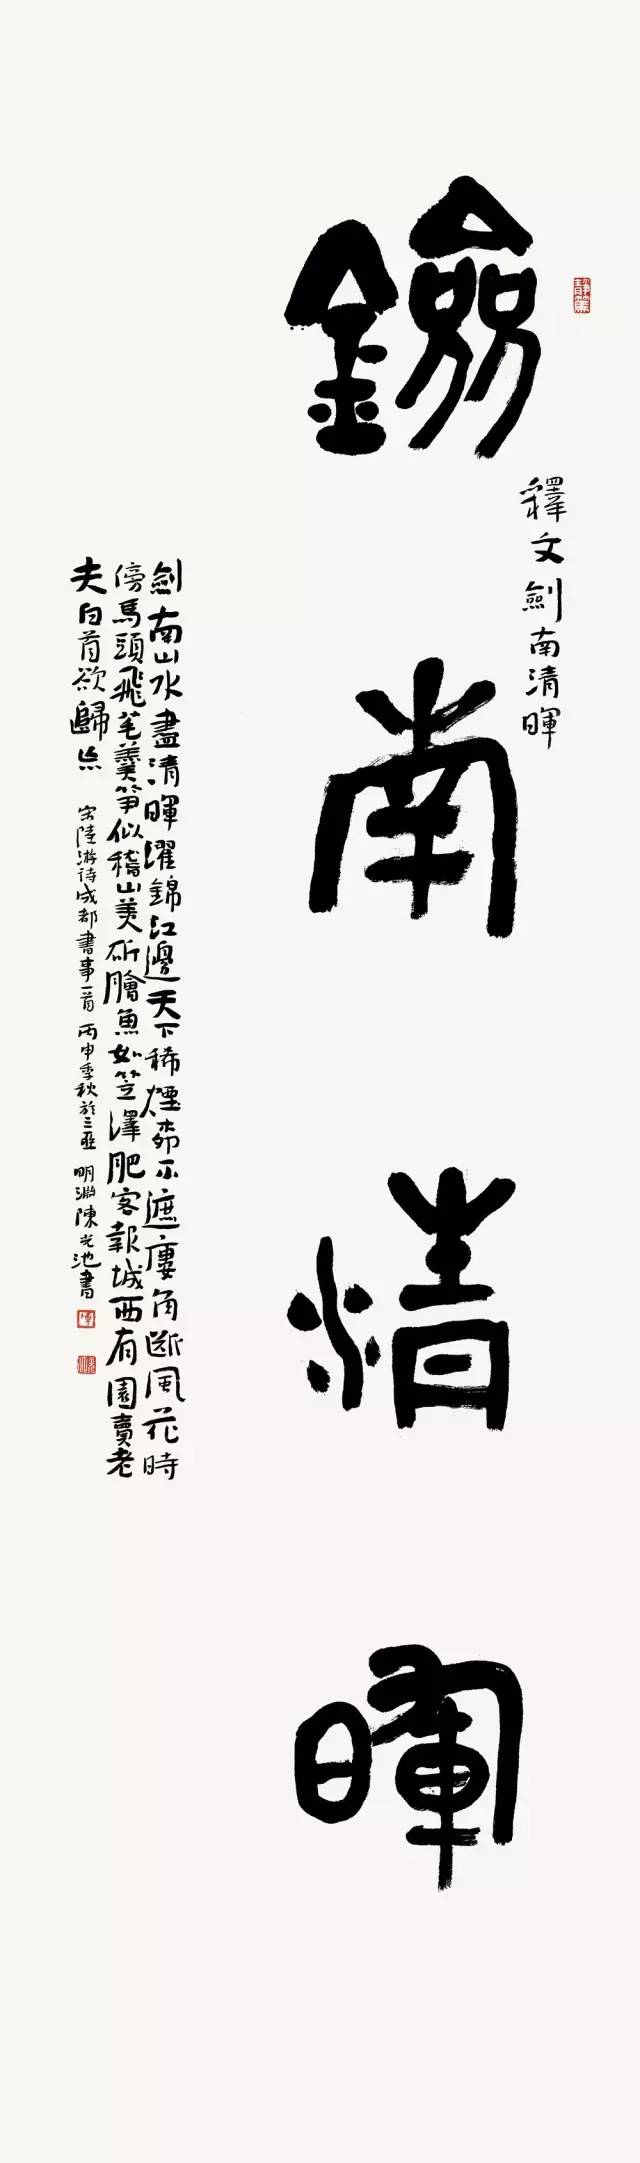 靜篤
釋文劍南清暉
鐱南清暉
劍南山水盡清暉濯錦江邊天下稀煙柳不遮廔角斷風花時
傍馬頭飛芼羹筍似稽山美斫膾魚如笠澤肥客報城西有園賣老
夫白首欲歸 宋陸游诗成都書事一首 丙申季秋於三亞 明淵陳光池書